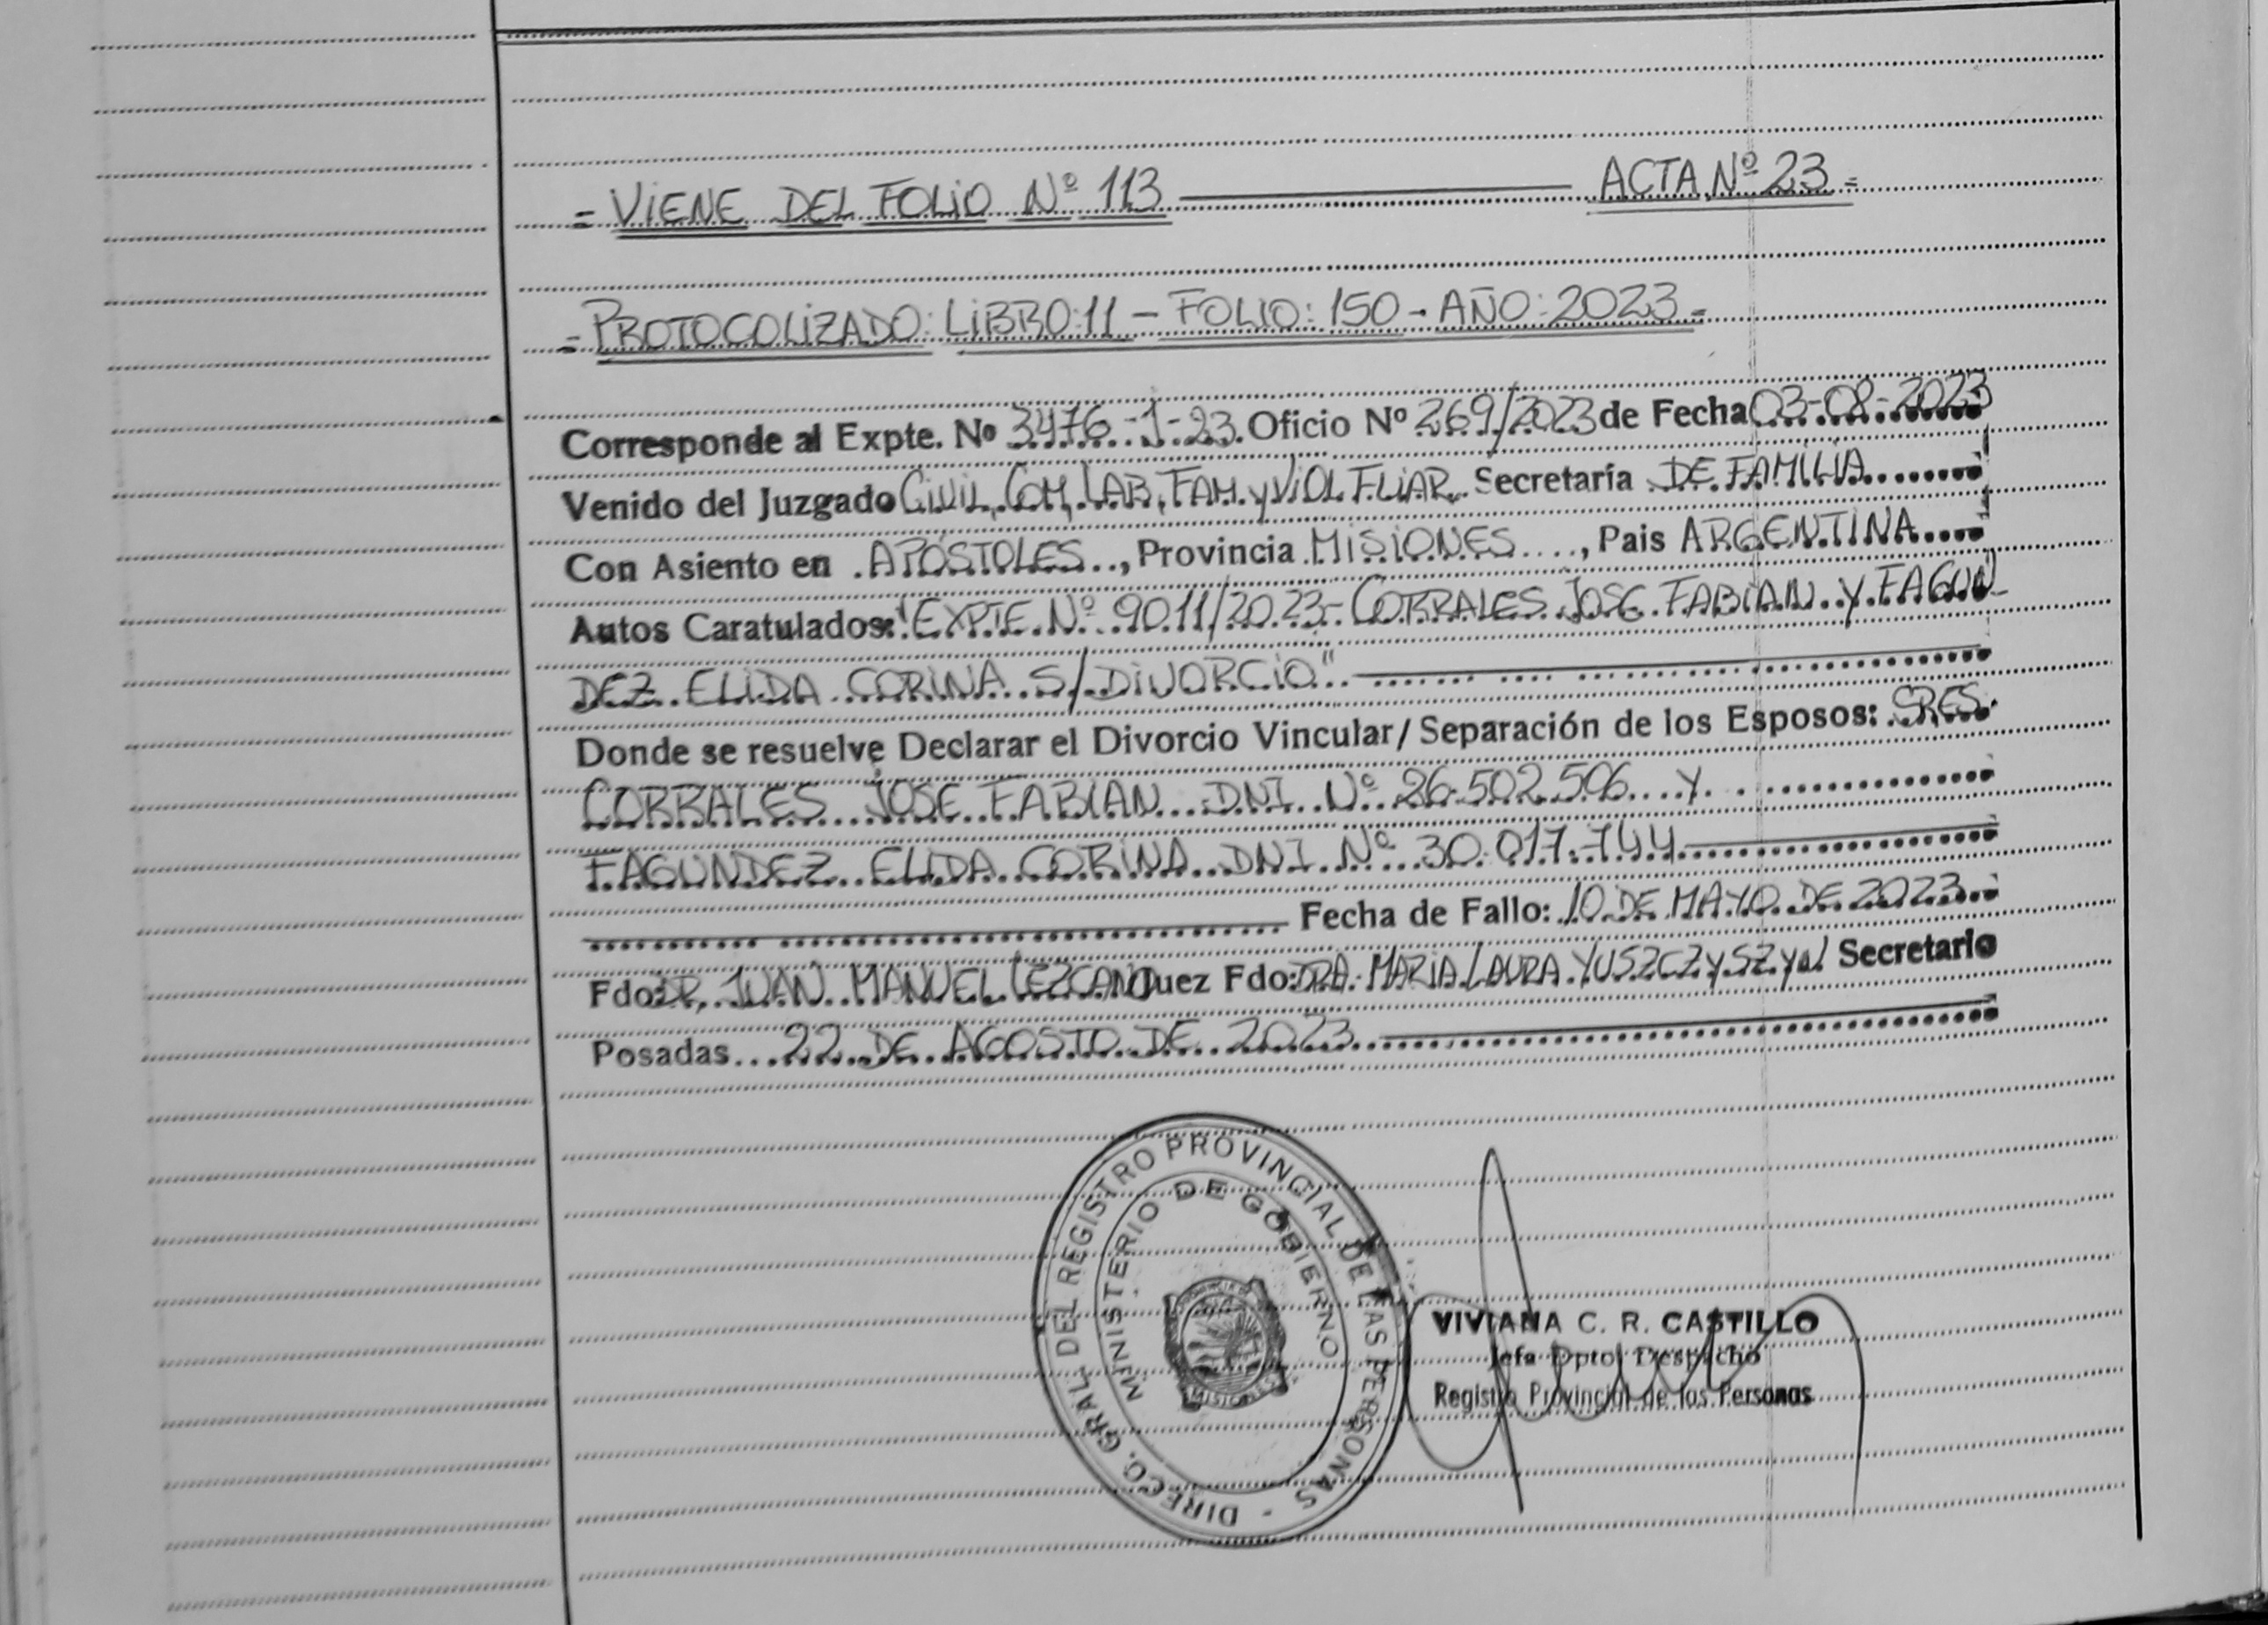 = VIENE DEL FOLIO Nº 113 ACTA Nº 23 =
= PROTOCOLIZADO: LIBRO: 11 - FOLIO: 150 - AÑO: 2023 =
Corresponde al Expte. Nº 3476-1-23. Oficio Nº 269/2023 de Fecha 03-08-2023
Venido del Juzgado CIVIL, COM, LAB, FAM. y VIOL. FLIAR. Secretaría DE FAMILIA
Con Asiento en APÓSTOLES, Provincia MISIONES, Pais ARGENTINA
Autos Caratulados: "EXPTE Nº 9011/2023- CORRALES JOSE FABIAN Y FAGUN-
DEZ ELIDA CORINA S/ DIVORCIO"
Donde se resuelve Declarar el Divorcio Vincular/ Separación de los Esposos: SRES.
CORRALES JOSE FABIAN DNI Nº 26.502.506 Y
FAGUNDEZ ELIDA CORINA DNI Nº 30.017.744
Fecha de Fallo: 10 DE MAYO DE 2023
Fdo: DR. JUAN MANUEL LEZCANO Juez Fdo: DRA. MARIA LAURA YUSZCZYSZYN Secretario
Posadas 22 DE AGOSTO DE 2023
DIRECC. GRAL. DEL REGISTRO PROVINCIAL DE LAS PERSONAS -
MINISTERIO DE GOBIERNO
MISIONES
VIVIANA C. R. CASTILLO
Jefa Dpto. Despacho
Registro Provincial de las Personas